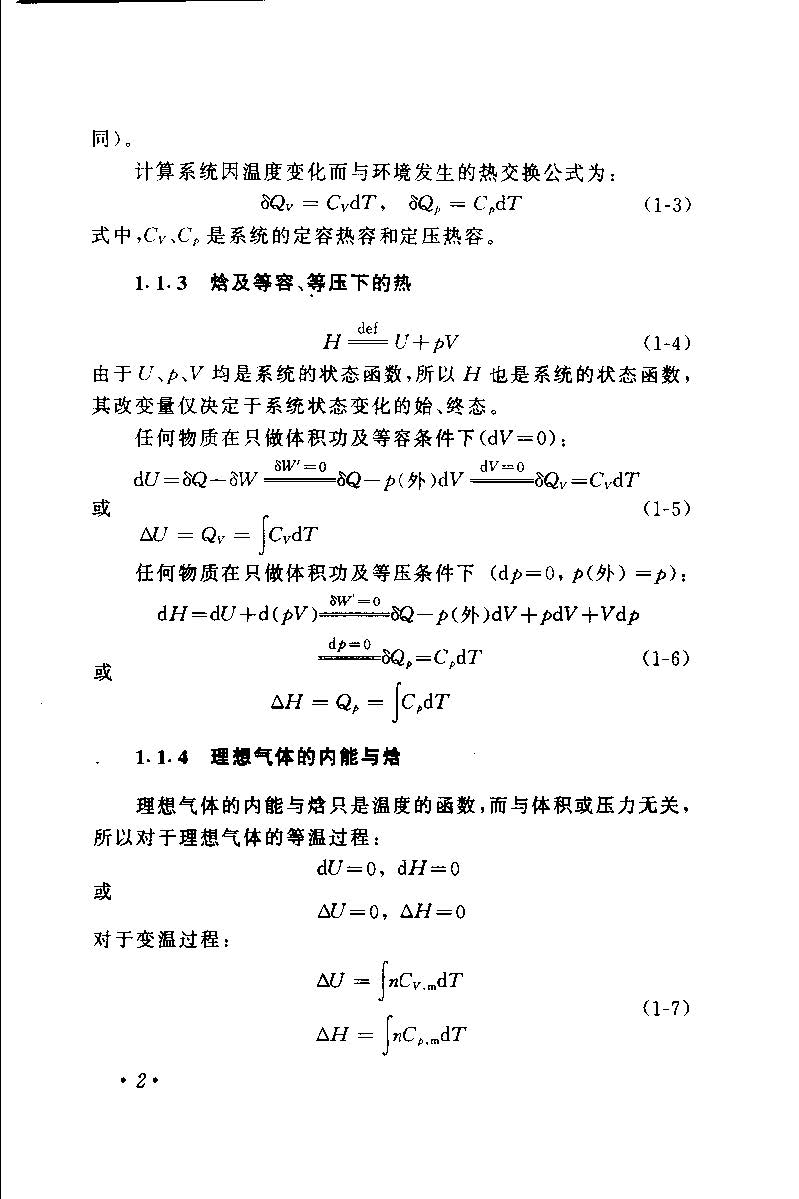 同)。
计算系统因温度变化而与环境发生的热交换公式为:
δQ_V = C_VdT, δQ_p = C_pdT (1-3)
式中,C_V、C_p 是系统的定容热容和定压热容。
1.1.3 焓及等容、等压下的热
H \xlongequal{def} U+pV (1-4)
由于 U、p、V 均是系统的状态函数,所以 H 也是系统的状态函数,
其改变量仅决定于系统状态变化的始、终态。
任何物质在只做体积功及等容条件下(dV=0):
dU=δQ-δW \xlongequal{δW'=0} δQ-p(外)dV \xlongequal{dV=0} δQ_V=C_VdT
或 (1-5)
ΔU = Q_V = ∫C_VdT
任何物质在只做体积功及等压条件下 (dp=0, p(外) =p):
dH=dU+d(pV) \xlongequal{δW'=0} δQ-p(外)dV+pdV+Vdp
\xlongequal{dp=0} δQ_p=C_pdT (1-6)
或
ΔH = Q_p = ∫C_pdT
1.1.4 理想气体的内能与焓
理想气体的内能与焓只是温度的函数,而与体积或压力无关,
所以对于理想气体的等温过程:
dU=0, dH=0
或
ΔU=0, ΔH=0
对于变温过程:
ΔU = ∫nC_{V,m}dT
(1-7)
ΔH = ∫nC_{p,m}dT
·2·